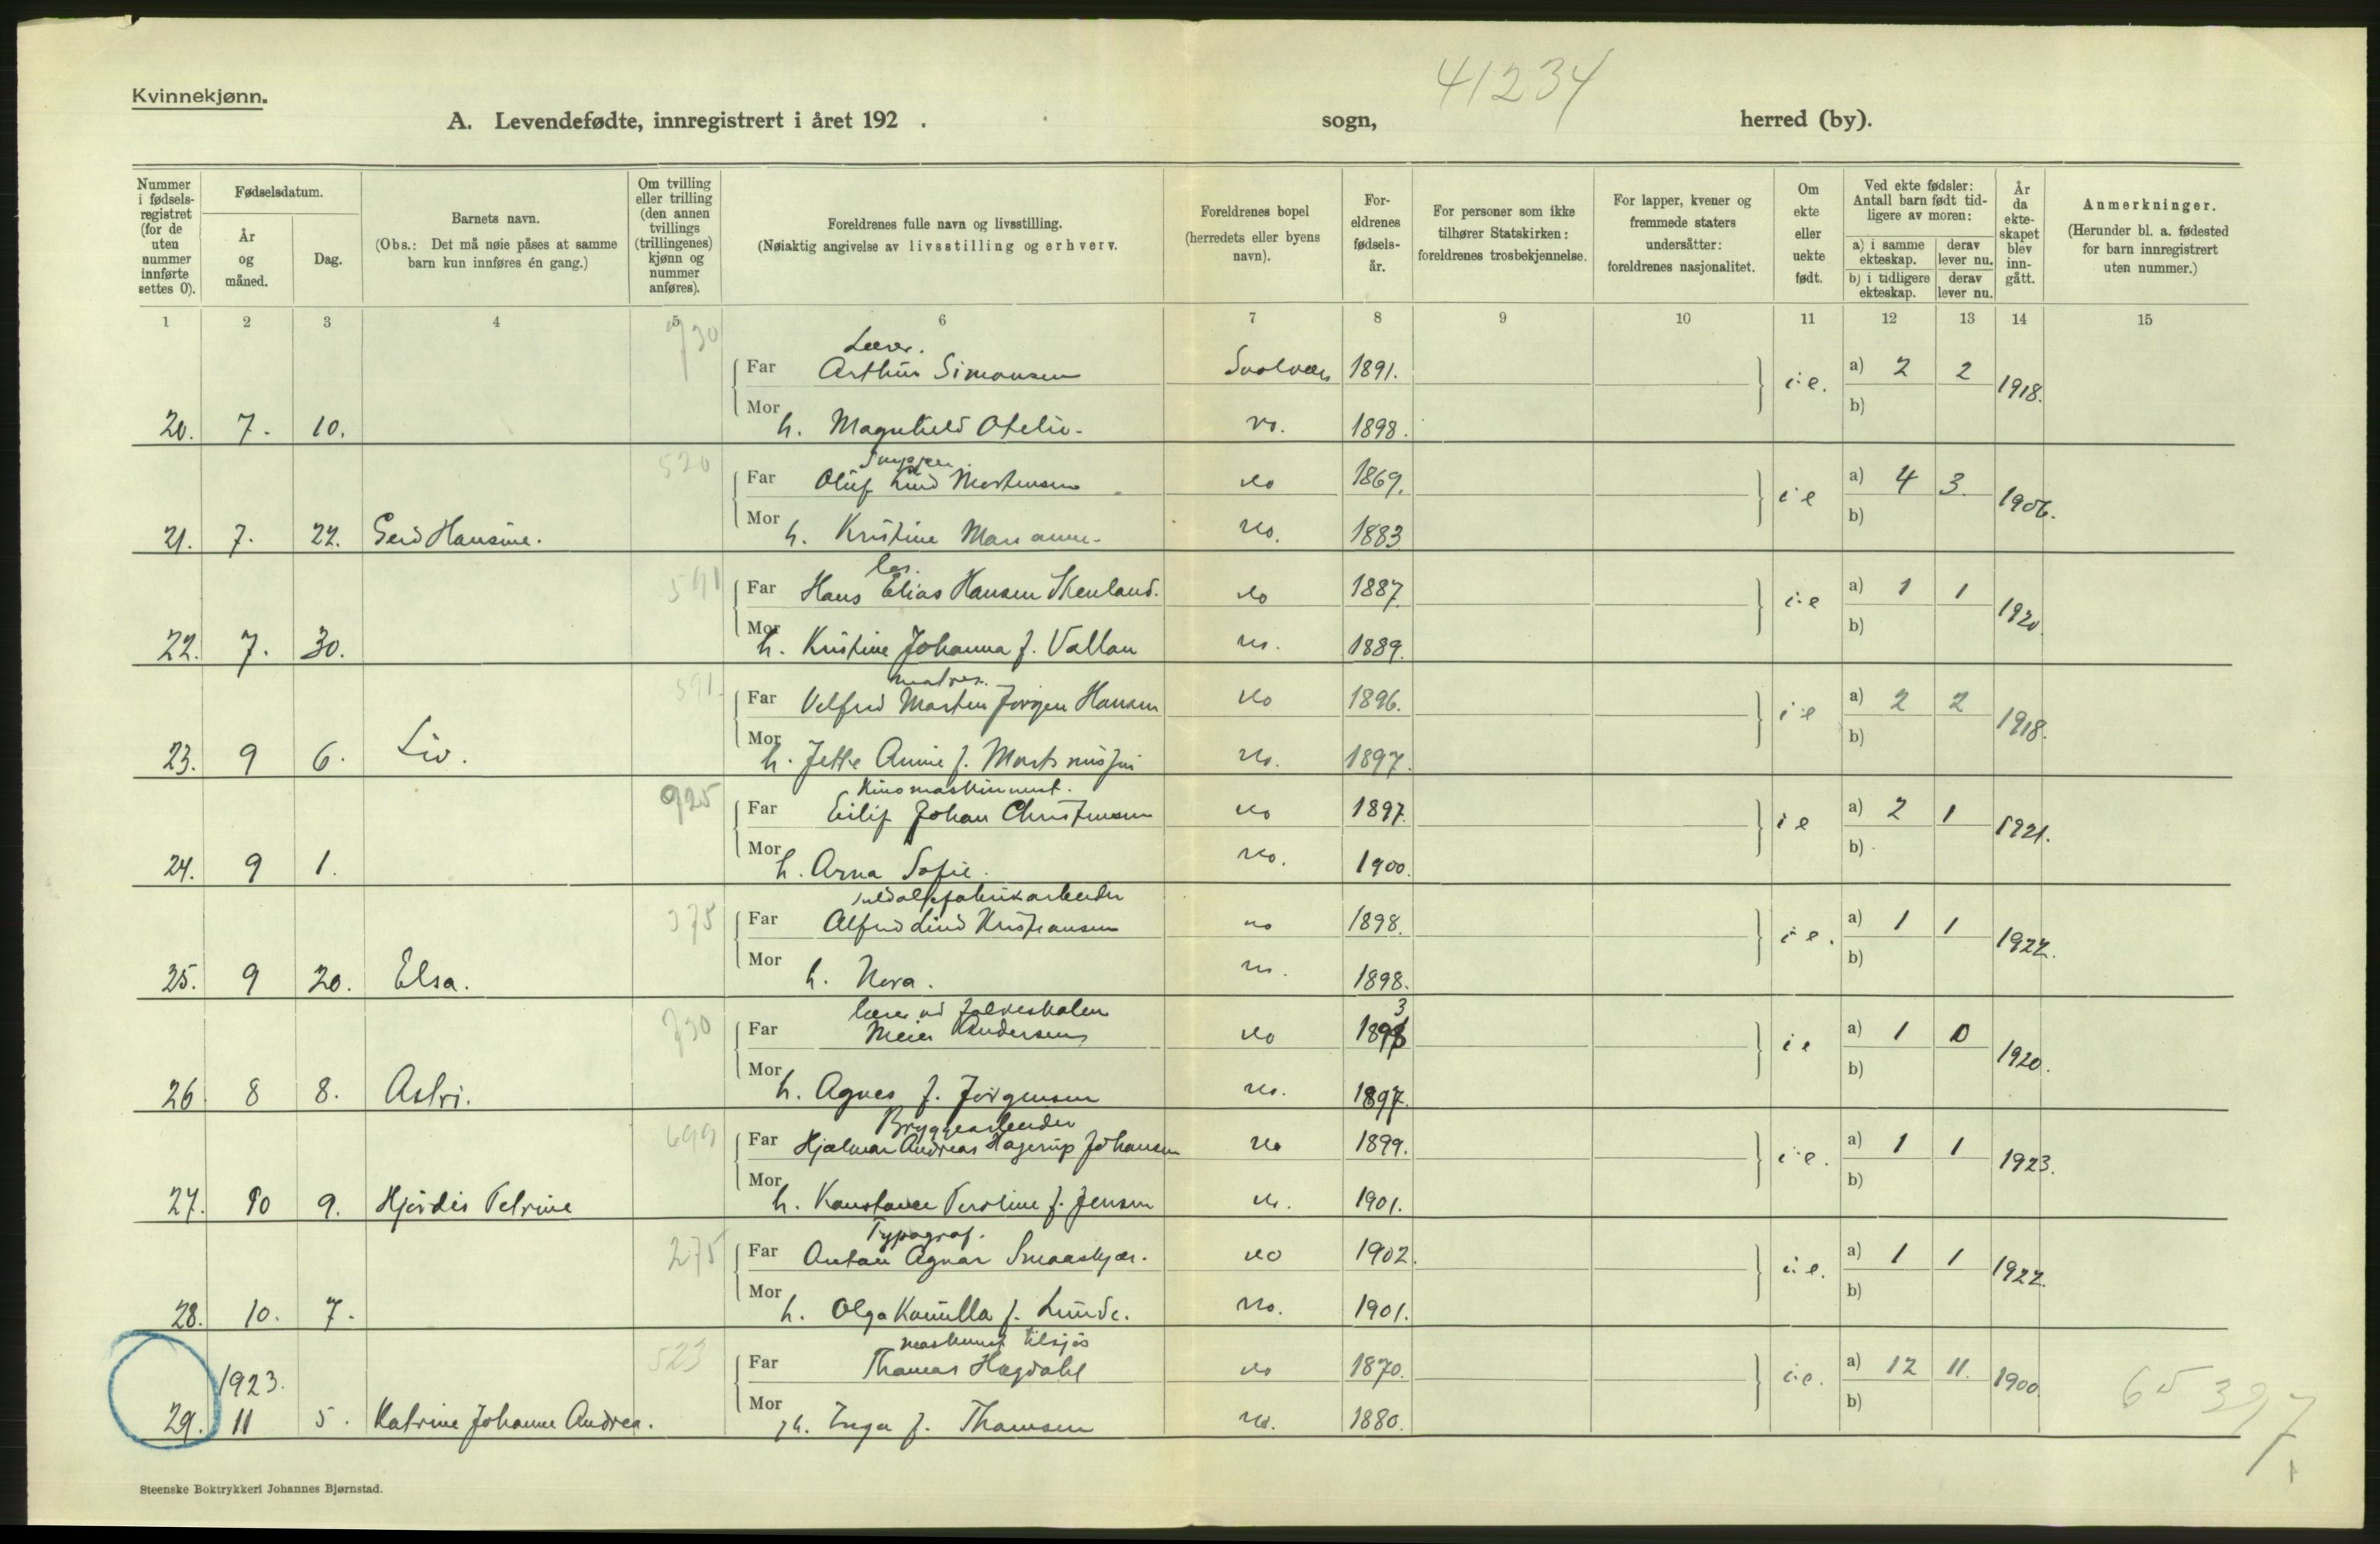 41234
Kvinnekjønn.
A. Levendefødte, innregistrert i året 192 . sogn, herred (by).
Nummer i fødsels-registret (for de uten nummer innførte settes 0).
Fødselsdatum.
År og måned.
Dag.
Barnets navn.
(Obs.: Det må nøie påses at samme barn kun innføres én gang.)
Om tvilling eller trilling (den annen tvillings (trillingenes) kjønn og nummer anføres).
Foreldrenes fulle navn og livsstilling.
(Nøiaktig angivelse av livsstilling og erhverv.
Foreldrenes bopel (herredets eller byens navn).
For-eldrenes fødsels-år.
For personer som ikke tilhører Statskirken: foreldrenes trosbekjennelse.
For lapper, kvener og fremmede staters undersåtter: foreldrenes nasjonalitet.
Om ekte eller uekte født.
Ved ekte fødsler: Antall barn født tid-ligere av moren:
a) i samme ekteskap.
derav lever nu.
b) i tidligere ekteskap.
derav lever nu.
År da ekte-skapet blev inn-gått.
Anmerkninger.
(Herunder bl. a. fødested for barn innregistrert uten nummer.)
1 2 3 4 5 6 7 8 9 10 11 12 13 14 15
730 Lærer.
Far Arthur Simonsen Svolvær 1891. i.e. a) 2 2 1918.
b)
20. 7. 10. Mor h. Magnhild Otelie. 1898.
520
Far Oluf Lind Mortensen do 1869. i e a) 4 3. 1906.
b)
21. 7. 22. Gerd Hansine. Mor h. Kristine Marianne. do. 1883
591 los.
Far Hans Elias Hansen Skenland. do 1887. i.e a) 1 1 1920.
b)
22. 7. 30. Mor h. Kristine Johanna f. Vallan do. 1889.
591 matros.
Far Velfred Marten Jørgen Hansen do 1896. i.e a) 2 2 1918.
b)
23. 9 6. Liv. Mor h. Jette Annie f. do. 1897.
925 Kinomaskinmest.
Far Eilif Johan Christensen do 1897. i e a) 2 1 1921.
b)
24. 9 1. Mor h. Arna Sofie. do. 1900.
375 sildoljefabrikarbeider
Far Alfred Lind Kristiansen do 1898. i e. a) 1 1 1922.
b)
25. 9 20. Elsa. Mor h. Nora. do. 1898.
730 lærer ved folkeskolen 3
Far Meier Andersen do 1898 i e a) 1 0 1920.
b)
26 8 8. Astri. Mor h. Agnes f. Jørgensen do. 1897.
699 Bryggearbeider
Far Hjalmar Andreas Hagerup Johansen do 1899. i.e. a) 1 1 1923.
b)
27. 10 9. Hjørdis Petrine Mor h. Konstance Peroline f. Jensen do. 1901.
275 Typograf.
Far Anton Agnar Smaaskjær. do 1902. i.e. a) 1 1 1922.
b)
28. 10. 7. Mor h. Olga Kamilla f. Lunde. do. 1901.
523 maskinist tilsjøs
Far Thomas Hagdahl do 1870. i.e. a) 12 11. 1900.
b)
1923.
29. 11 5. Katrine Johanne Andrea. Mor h. Inga f. Thomsen do. 1880.
65 397
1
Steenske Boktrykkeri Johannes Bjørnstad.